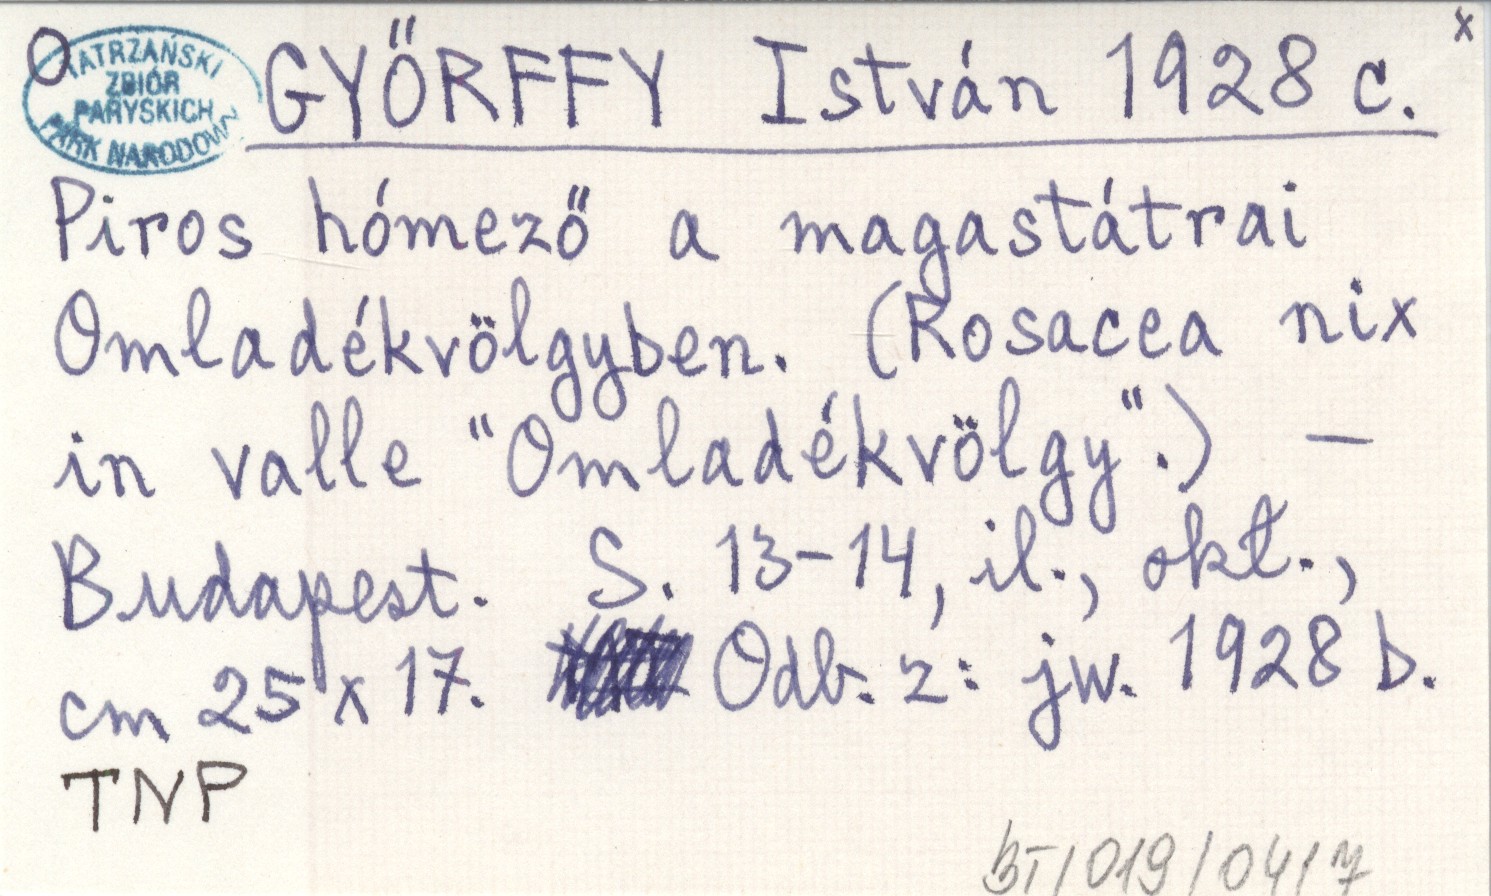 O
TATRZAŃSKI
ZBIÓR
PARYSKICH
PARK NARODOWY
GYŐRFFY István 1928 c. x
Piros hómező a magastátrai
Omladékvölgyben. (Rosacea nix
in valle "Omladékvölgy".) —
Budapest. S. 13-14, il., okt.,
cm 25 x 17. Odb. z: jw. 1928 b.
TNP
BT/019/04/7